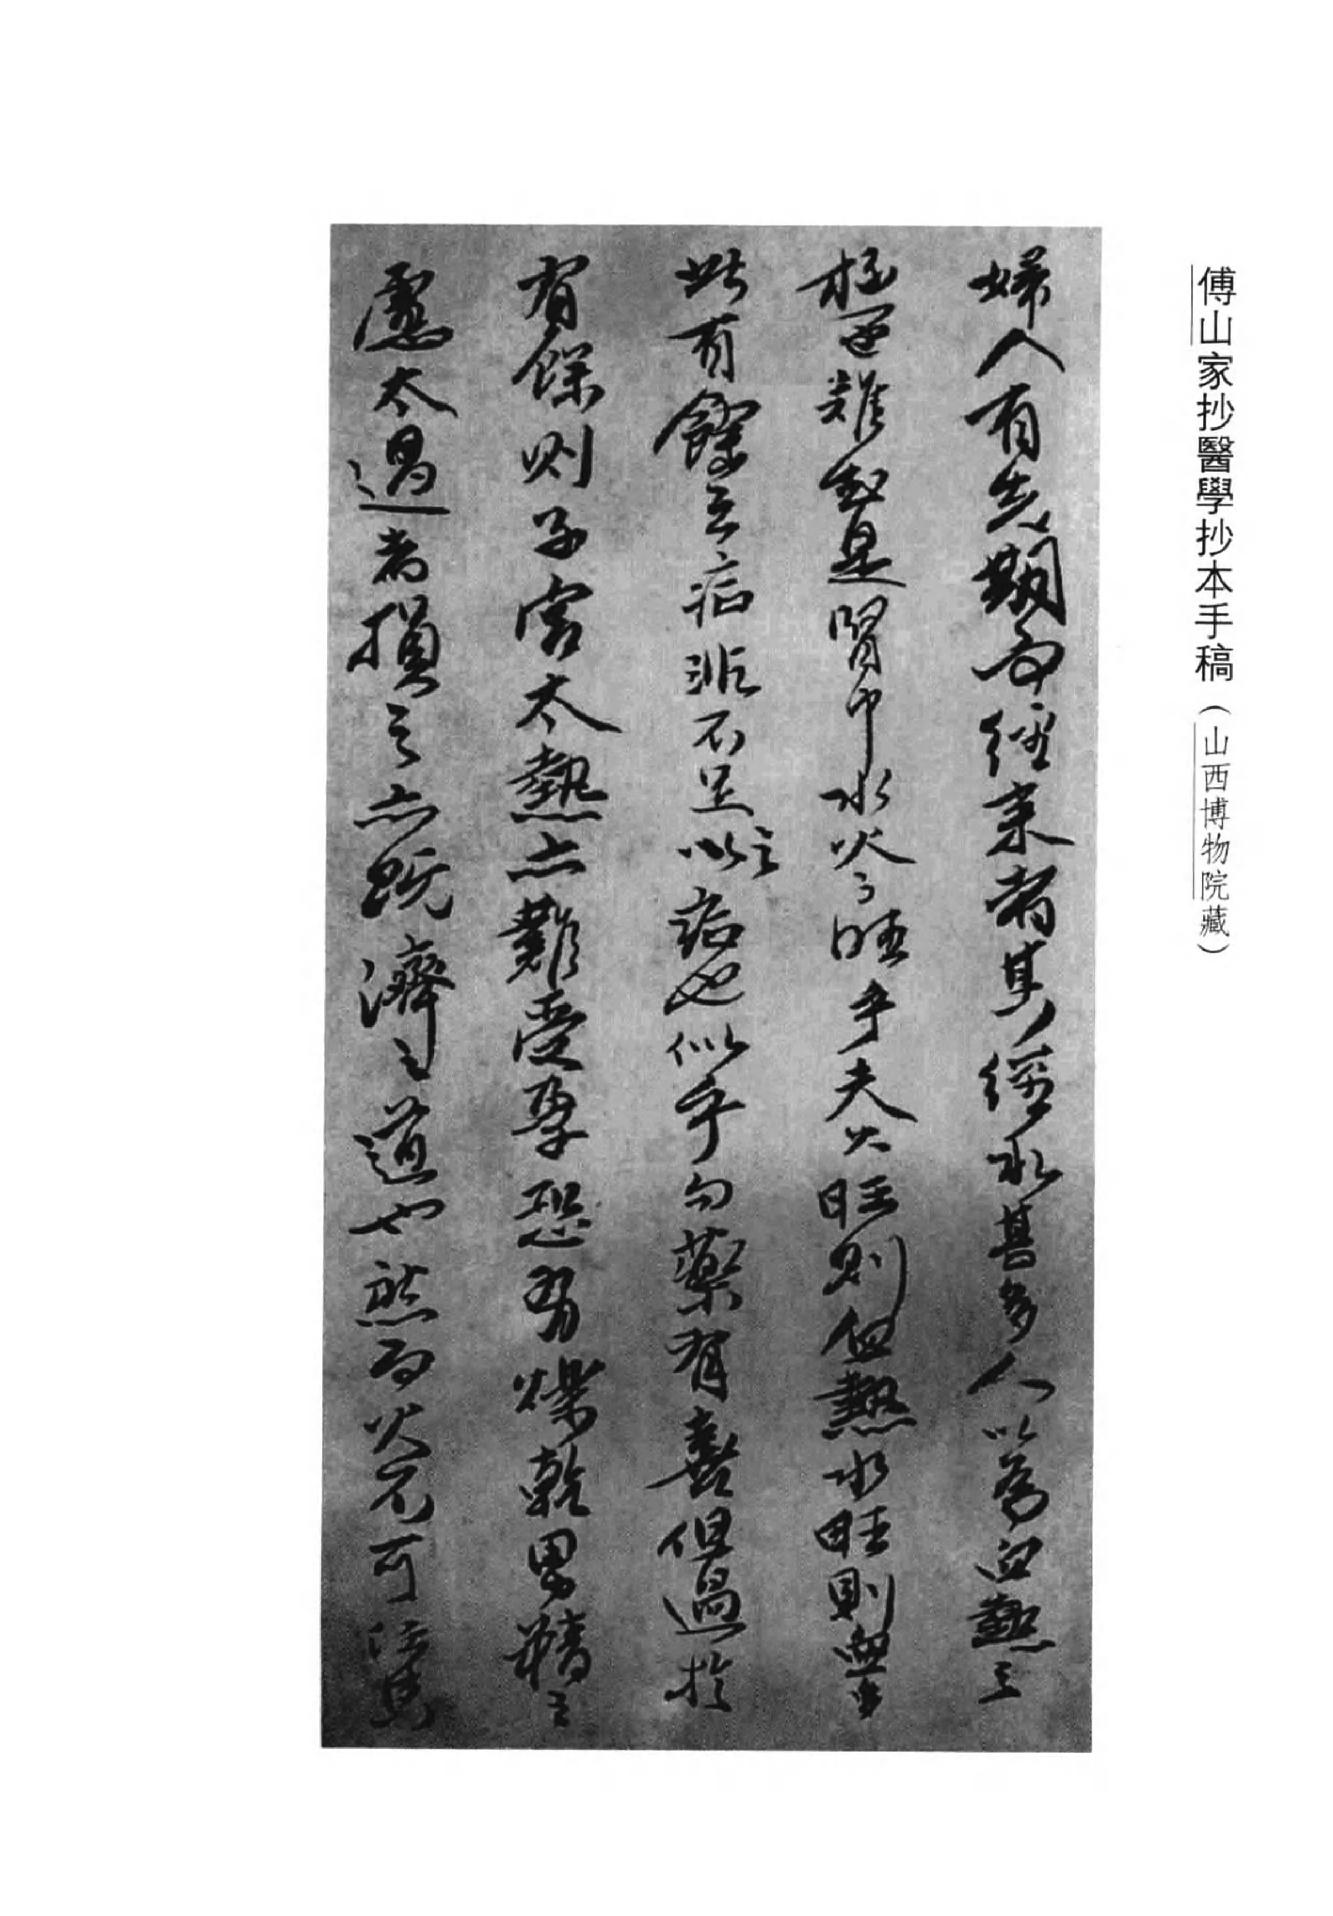 傅山家抄醫學抄本手稿（山西博物院藏）
婦人有先期而經來者其經水甚多人以為血熱之
極誰知是腎中水火之旺乎夫火旺則血熱水旺則血多
此有餘之病非不足以之病也似乎勿藥有喜但過於
有餘則子宮太熱亦難受孕恐有爍乾男精之
慮太過者損之亦既濟之道也然而火不可任其